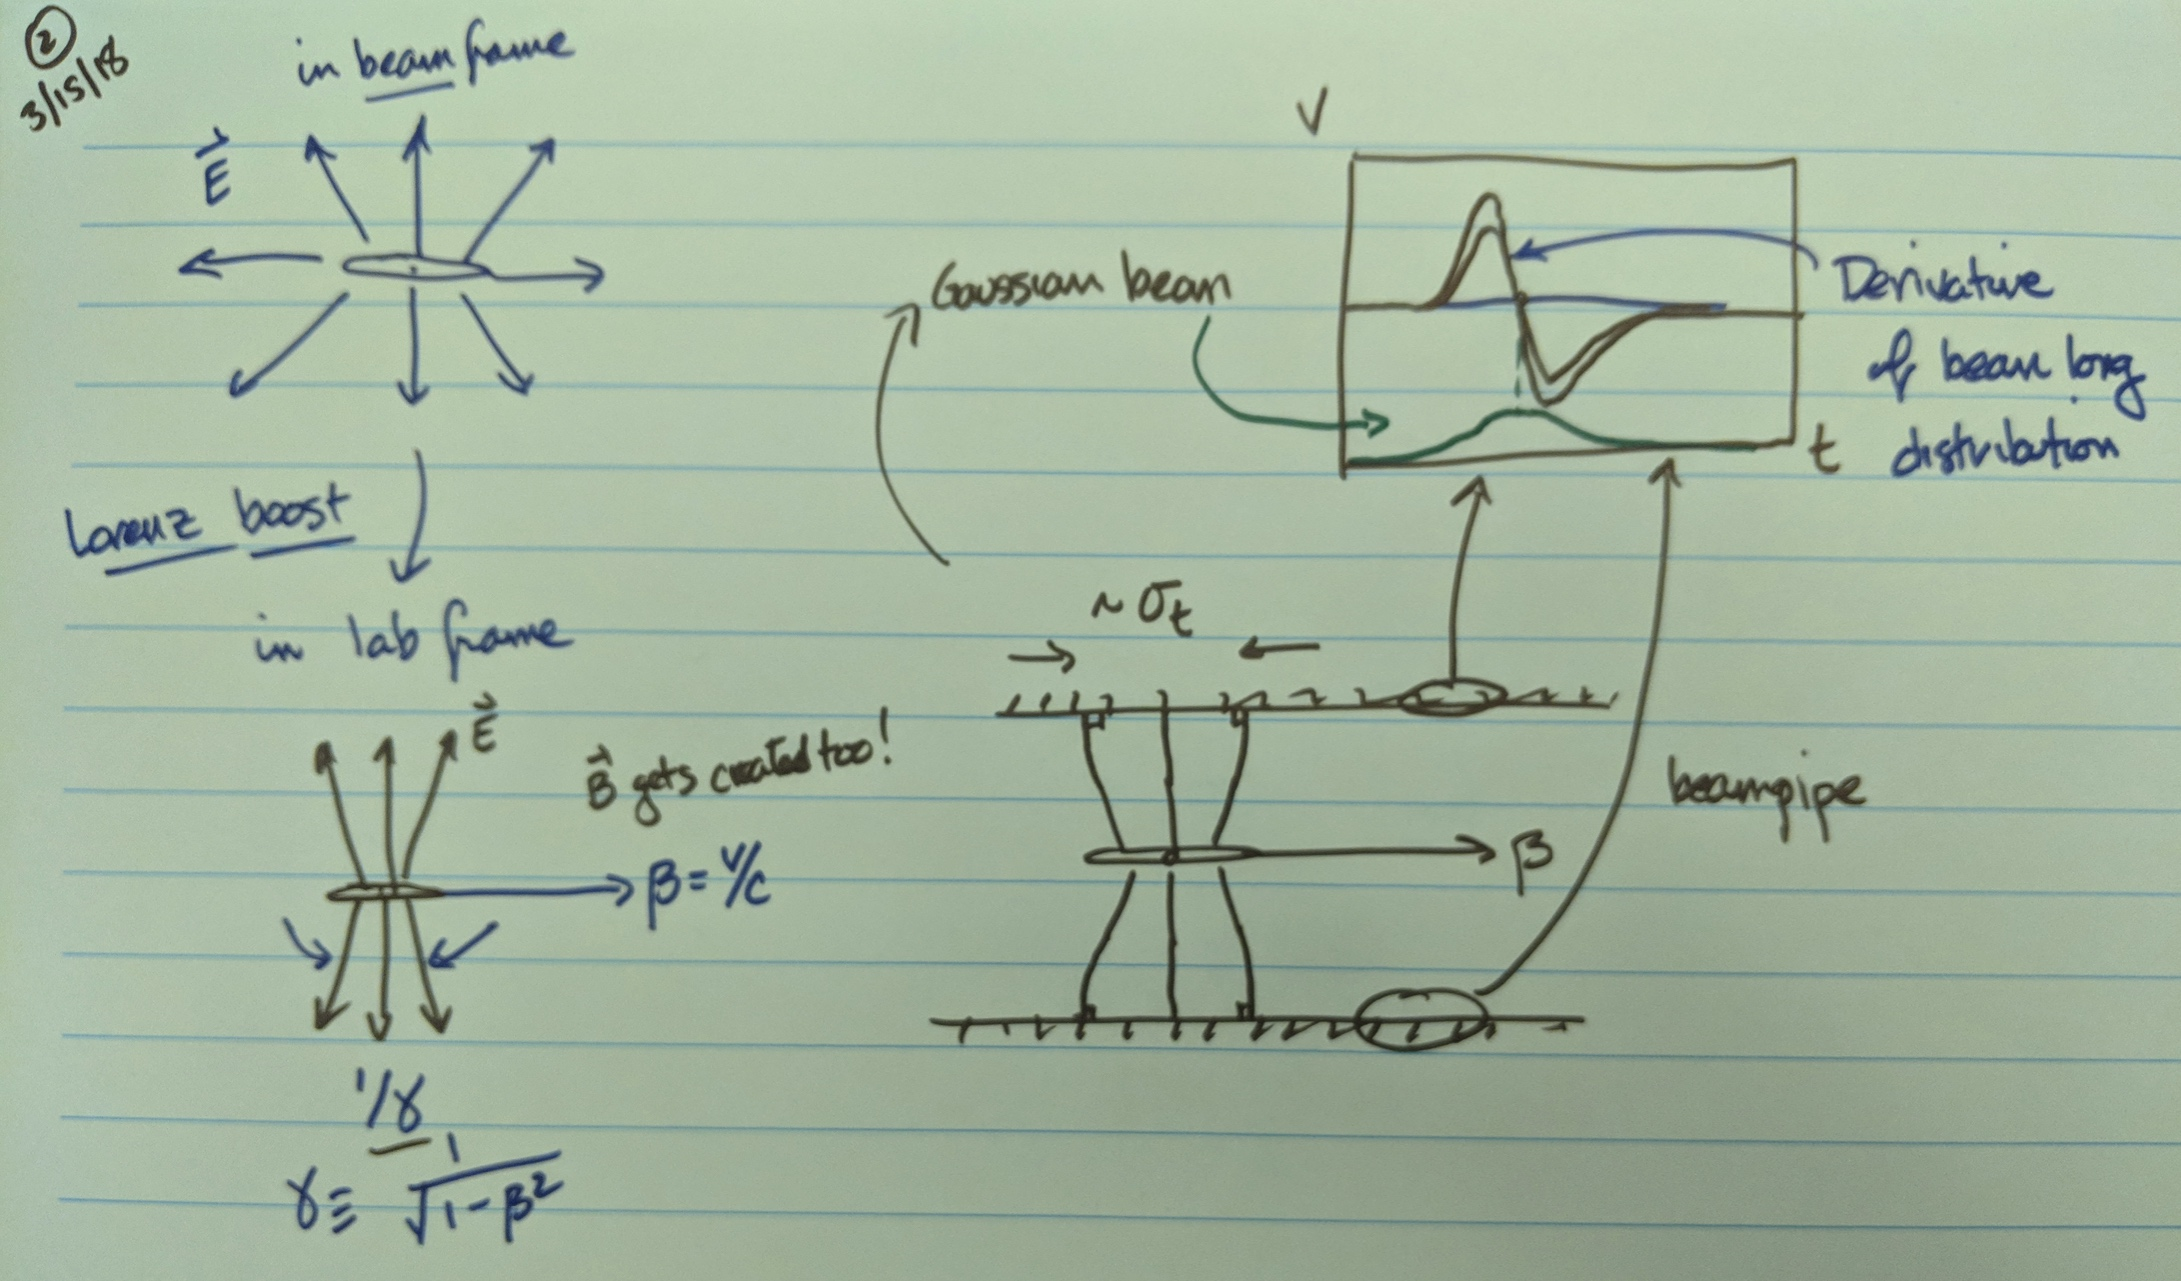 ②
3/15/18
in beam frame
E
Lorenz boost
in lab frame
E
B gets created too!
β = v/c
1/γ
γ ≡ 1/√(1-β²)
V
Gaussian beam
Derivative
of beam long
distribution
t
~ σt
β
beampipe